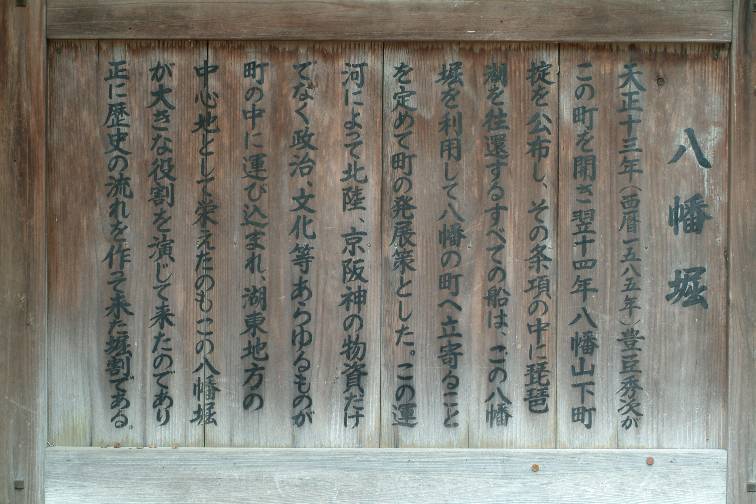 八幡堀
天正十三年（西暦一五八五年）豊臣秀次が
この町を開き翌十四年八幡山下町
掟を公布し、その条項の中に琵琶
湖を往還するすべての船は、この八幡
堀を利用して八幡の町へ立寄ること
を定めて町の発展策とした。この運
河によって北陸、京阪神の物資だけ
でなく政治、文化等あらゆるものが
町の中に運び込まれ、湖東地方の
中心地として栄えたのもこの八幡堀
が大きな役割を演じて来たのであり
正に歴史の流れを作って来た堀割である。